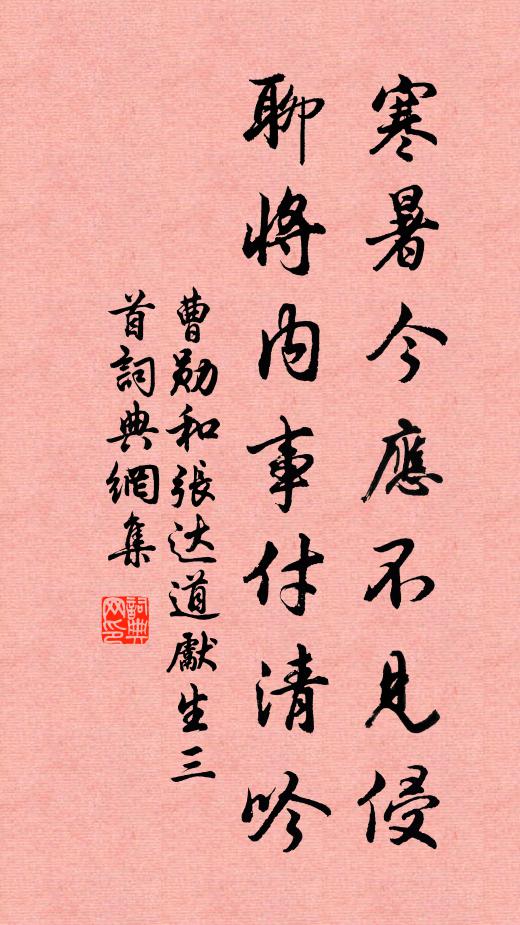 寒暑今應不見侵
聊將内事付清吟
曹勋和張达道獻生三
首詞典網集
詞典
网印